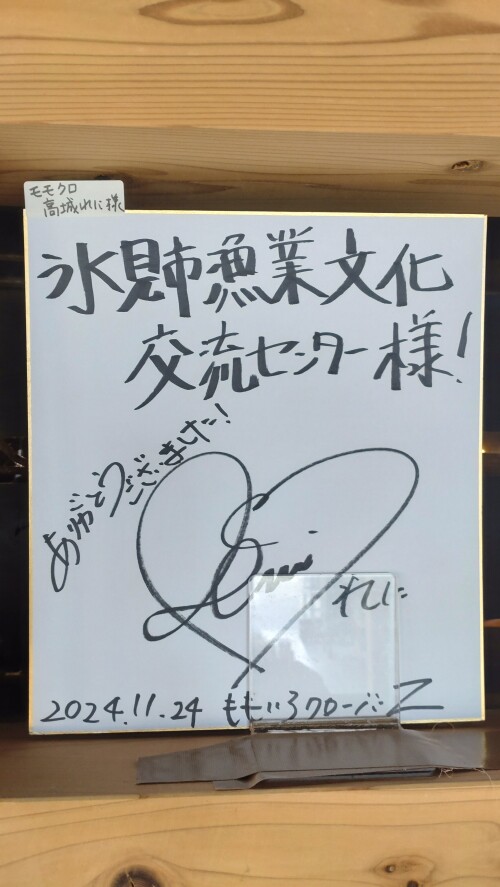 モモクロ
高城れに様
氷見市漁業文化
交流センター様!
ありがとうございました!
れに
2024.11.24 ももいろクローバーZ